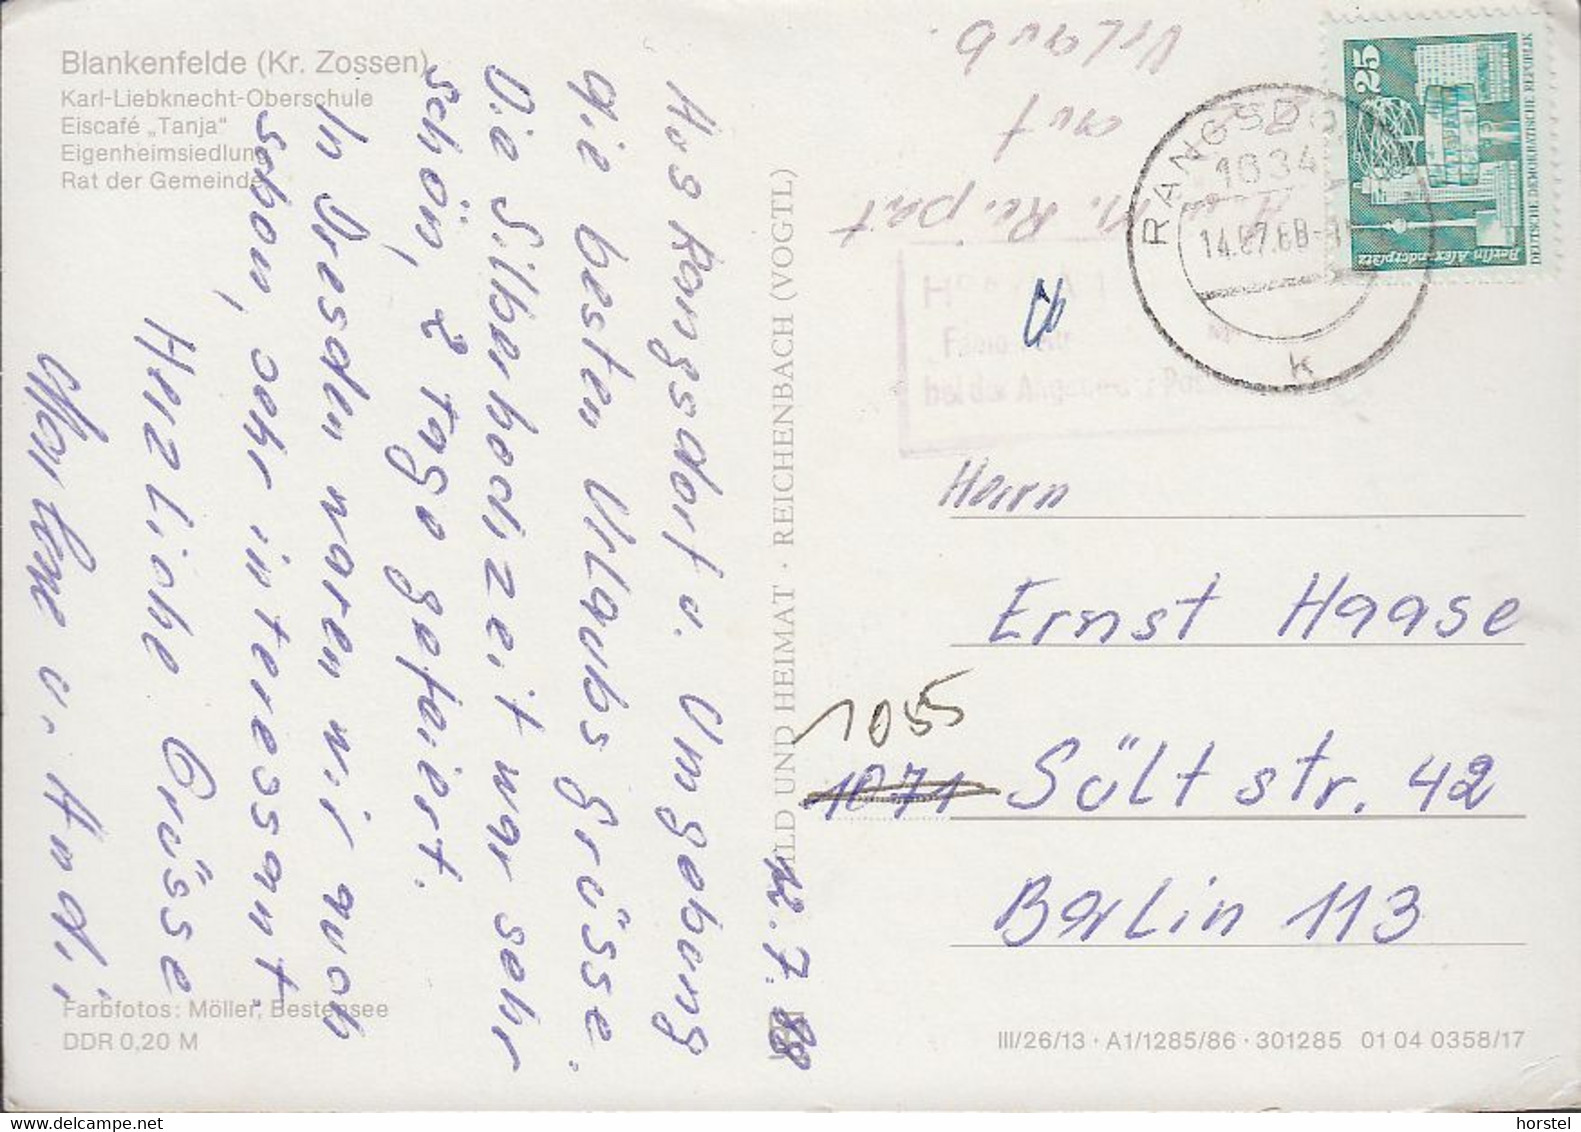 Blankenfelde (Kr. Zossen)
Karl-Liebknecht-Oberschule
Eiscafé „Tanja"
Eigenheimsiedlung
Rat der Gemeinde
Aus Rangsdorf u. Umgebung
die besten Urlaubsgrüsse.
Die Silberhochzeit war sehr
schön, 2 Tage gefeiert.
In Dresden waren wir auch
schon, sehr interessant.
Herzliche Grüsse
Marlene u. Andi
12.7.88
BILD UND HEIMAT · REICHENBACH (VOGTL)
Urlaub.
auf
25
DEUTSCHE DEMOKRATISCHE REPUBLIK
Berlin Alexanderplatz
RANGSDO
1634
14.07.88
k
bei der
Herrn
Ernst Haase
1055
1071 Sültstr. 42
Berlin 113
Farbfotos: Möller, Bestensee
DDR 0,20 M
III/26/13 · A1/1285/86 · 301285 01 04 0358/17
horstel